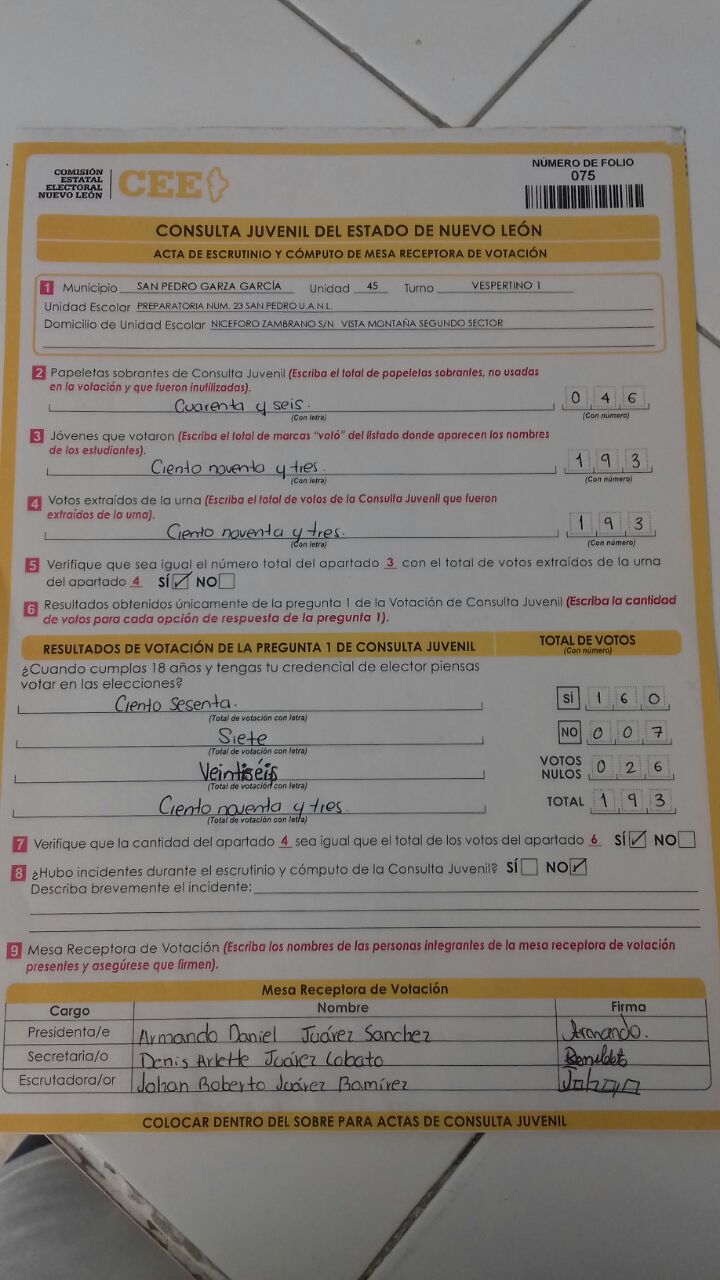 COMISIÓN
ESTATAL
ELECTORAL
NUEVO LEÓN
CEE
NÚMERO DE FOLIO
075
CONSULTA JUVENIL DEL ESTADO DE NUEVO LEÓN
ACTA DE ESCRUTINIO Y CÓMPUTO DE MESA RECEPTORA DE VOTACIÓN
1 Municipio SAN PEDRO GARZA GARCÍA Unidad 45 Turno VESPERTINO 1
Unidad Escolar PREPARATORIA NUM. 23 SAN PEDRO U.A.N.L.
Domicilio de Unidad Escolar NICEFORO ZAMBRANO S/N VISTA MONTAÑA SEGUNDO SECTOR
2 Papeletas sobrantes de Consulta Juvenil (Escriba el total de papeletas sobrantes, no usadas
en la votación y que fueron inutilizadas).
Cuarenta y seis. 0 4 6
(Con letra) (Con número)
3 Jóvenes que votaron (Escriba el total de marcas "votó" del listado donde aparecen los nombres
de los estudiantes).
Ciento noventa y tres. 1 9 3
(Con letra) (Con número)
4 Votos extraídos de la urna (Escriba el total de votos de la Consulta Juvenil que fueron
extraídos de la urna).
Ciento noventa y tres. 1 9 3
(Con letra) (Con número)
5 Verifique que sea igual el número total del apartado 3 con el total de votos extraídos de la urna
del apartado 4 SÍ ✓ NO
6 Resultados obtenidos únicamente de la pregunta 1 de la Votación de Consulta Juvenil (Escriba la cantidad
de votos para cada opción de respuesta de la pregunta 1).
RESULTADOS DE VOTACIÓN DE LA PREGUNTA 1 DE CONSULTA JUVENIL TOTAL DE VOTOS
(Con número)
¿Cuando cumplas 18 años y tengas tu credencial de elector piensas
votar en las elecciones?
Ciento Sesenta. SÍ 1 6 0
(Total de votación con letra)
Siete NO 0 0 7
(Total de votación con letra)
Veintiséis VOTOS NULOS 0 2 6
(Total de votación con letra)
Ciento noventa y tres. TOTAL 1 9 3
(Total de votación con letra)
7 Verifique que la cantidad del apartado 4 sea igual que el total de los votos del apartado 6 SÍ ✓ NO
8 ¿Hubo incidentes durante el escrutinio y cómputo de la Consulta Juvenil? SÍ NO ✓
Describa brevemente el incidente:
9 Mesa Receptora de Votación (Escriba los nombres de las personas integrantes de la mesa receptora de votación
presentes y asegúrese que firmen).
Mesa Receptora de Votación
Cargo Nombre Firma
Presidenta/e Armando Daniel Juárez Sanchez Armando.
Secretaria/o Denis Arlette Juárez Lobato
Escrutadora/or Johan Roberto Juárez Ramírez Johan
COLOCAR DENTRO DEL SOBRE PARA ACTAS DE CONSULTA JUVENIL